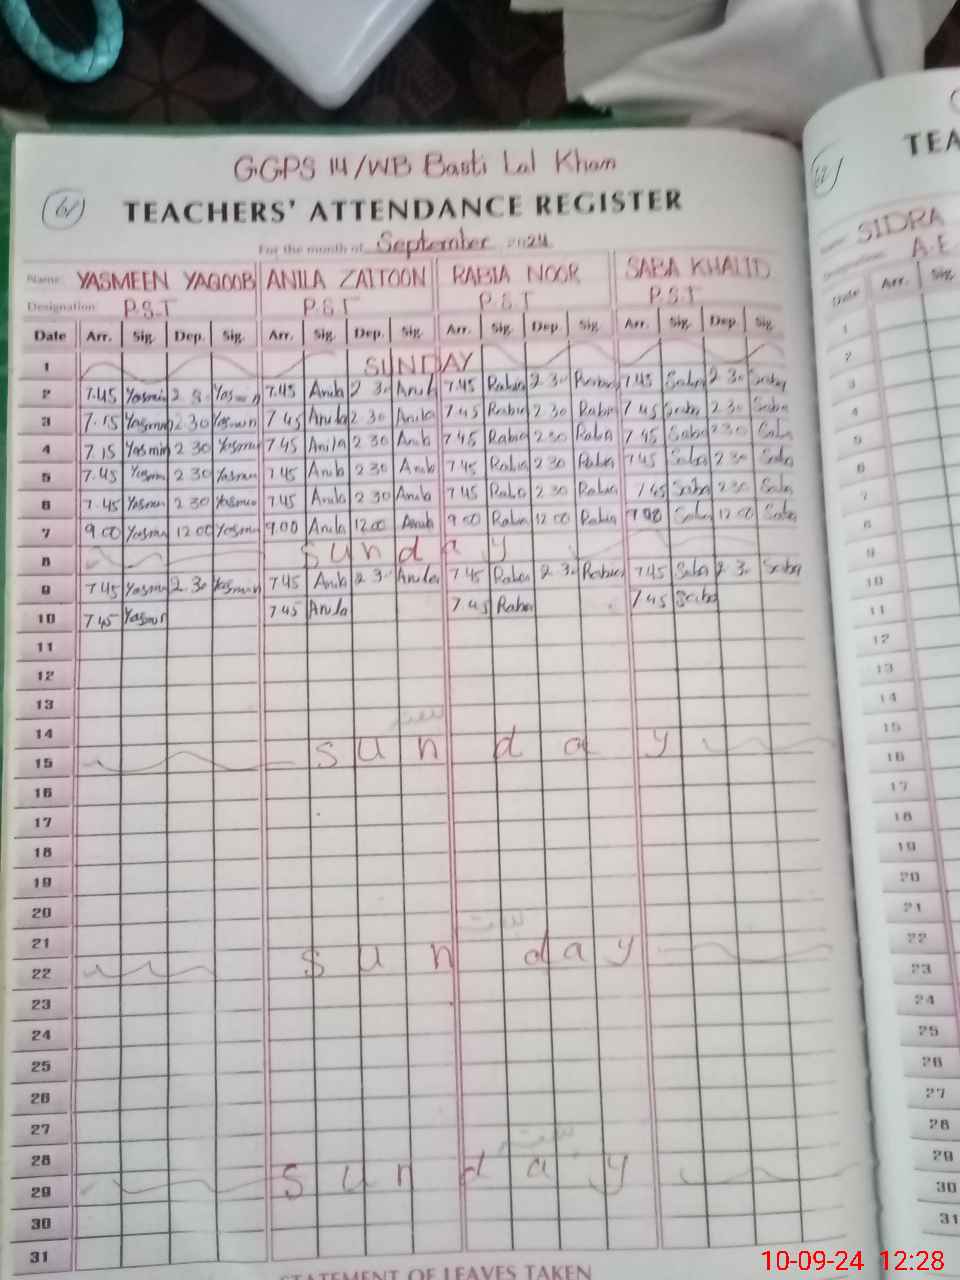 GGPS 14/WB Basti Lal Khan
61 TEACHERS' ATTENDANCE REGISTER
For the month of September 2024
Name: YASMEEN YAQOOB ANILA ZAITOON RABIA NOOR SABA KHALID
Designation P.S.T P.S.T P.S.T P.S.T
Date Arr. Sig. Dep. Sig. Arr. Sig. Dep. Sig. Arr. Sig. Dep. Sig. Arr. Sig. Dep. Sig.
1 SUNDAY
2 7.45 Yasmin 2 30 Yasmin 7.45 Anila 2 30 Anila 7.45 Rabia 2 30 Rabia 7.45 Saba 2 30 Saba
3 7.15 Yasmin 2 30 Yasmin 7 45 Anila 2 30 Anila 7.45 Rabia 2 30 Rabia 7 45 Saba 2 30 Saba
4 7.15 Yasmin 2 30 Yasmin 7.45 Anila 2 30 Anila 7.45 Rabia 2 30 Rabia 7.45 Saba 2 30 Saba
5 7.45 Yasmin 2 30 Yasmin 7.45 Anila 2 30 Anila 7.45 Rabia 2 30 Rabia 7.45 Saba 2 30 Saba
6 7.45 Yasmin 2 30 Yasmin 7.45 Anila 2 30 Anila 7.45 Rabia 2 30 Rabia 7.45 Saba 2 30 Saba
7 9 00 Yasmin 12 00 Yasmin 9.00 Anila 12 00 Anila 9 00 Rabia 12 00 Rabia 9 00 Saba 12 00 Saba
8 Sunday
9 7 45 Yasmin 2.30 Yasmin 7 45 Anila 2 30 Anila 7.45 Rabia 2 30 Rabia 7.45 Saba 2 30 Saba
10 7.45 Yasmin 7 45 Anila 7.45 Rabia 7.45 Saba
11
12
13
14
15 Sunday
16
17
18
19
20
21
22 Sunday
23
24
25
26
27
28
29 Sunday
30
31
STATEMENT OF LEAVES TAKEN
TEA
SIDRA
A.E
Date Arr. Sig.
1
2
3
4
5
6
7
8
9
10
11
12
13
14
15
16
17
18
19
20
21
22
23
24
25
26
27
28
29
30
31
10-09-24 12:28